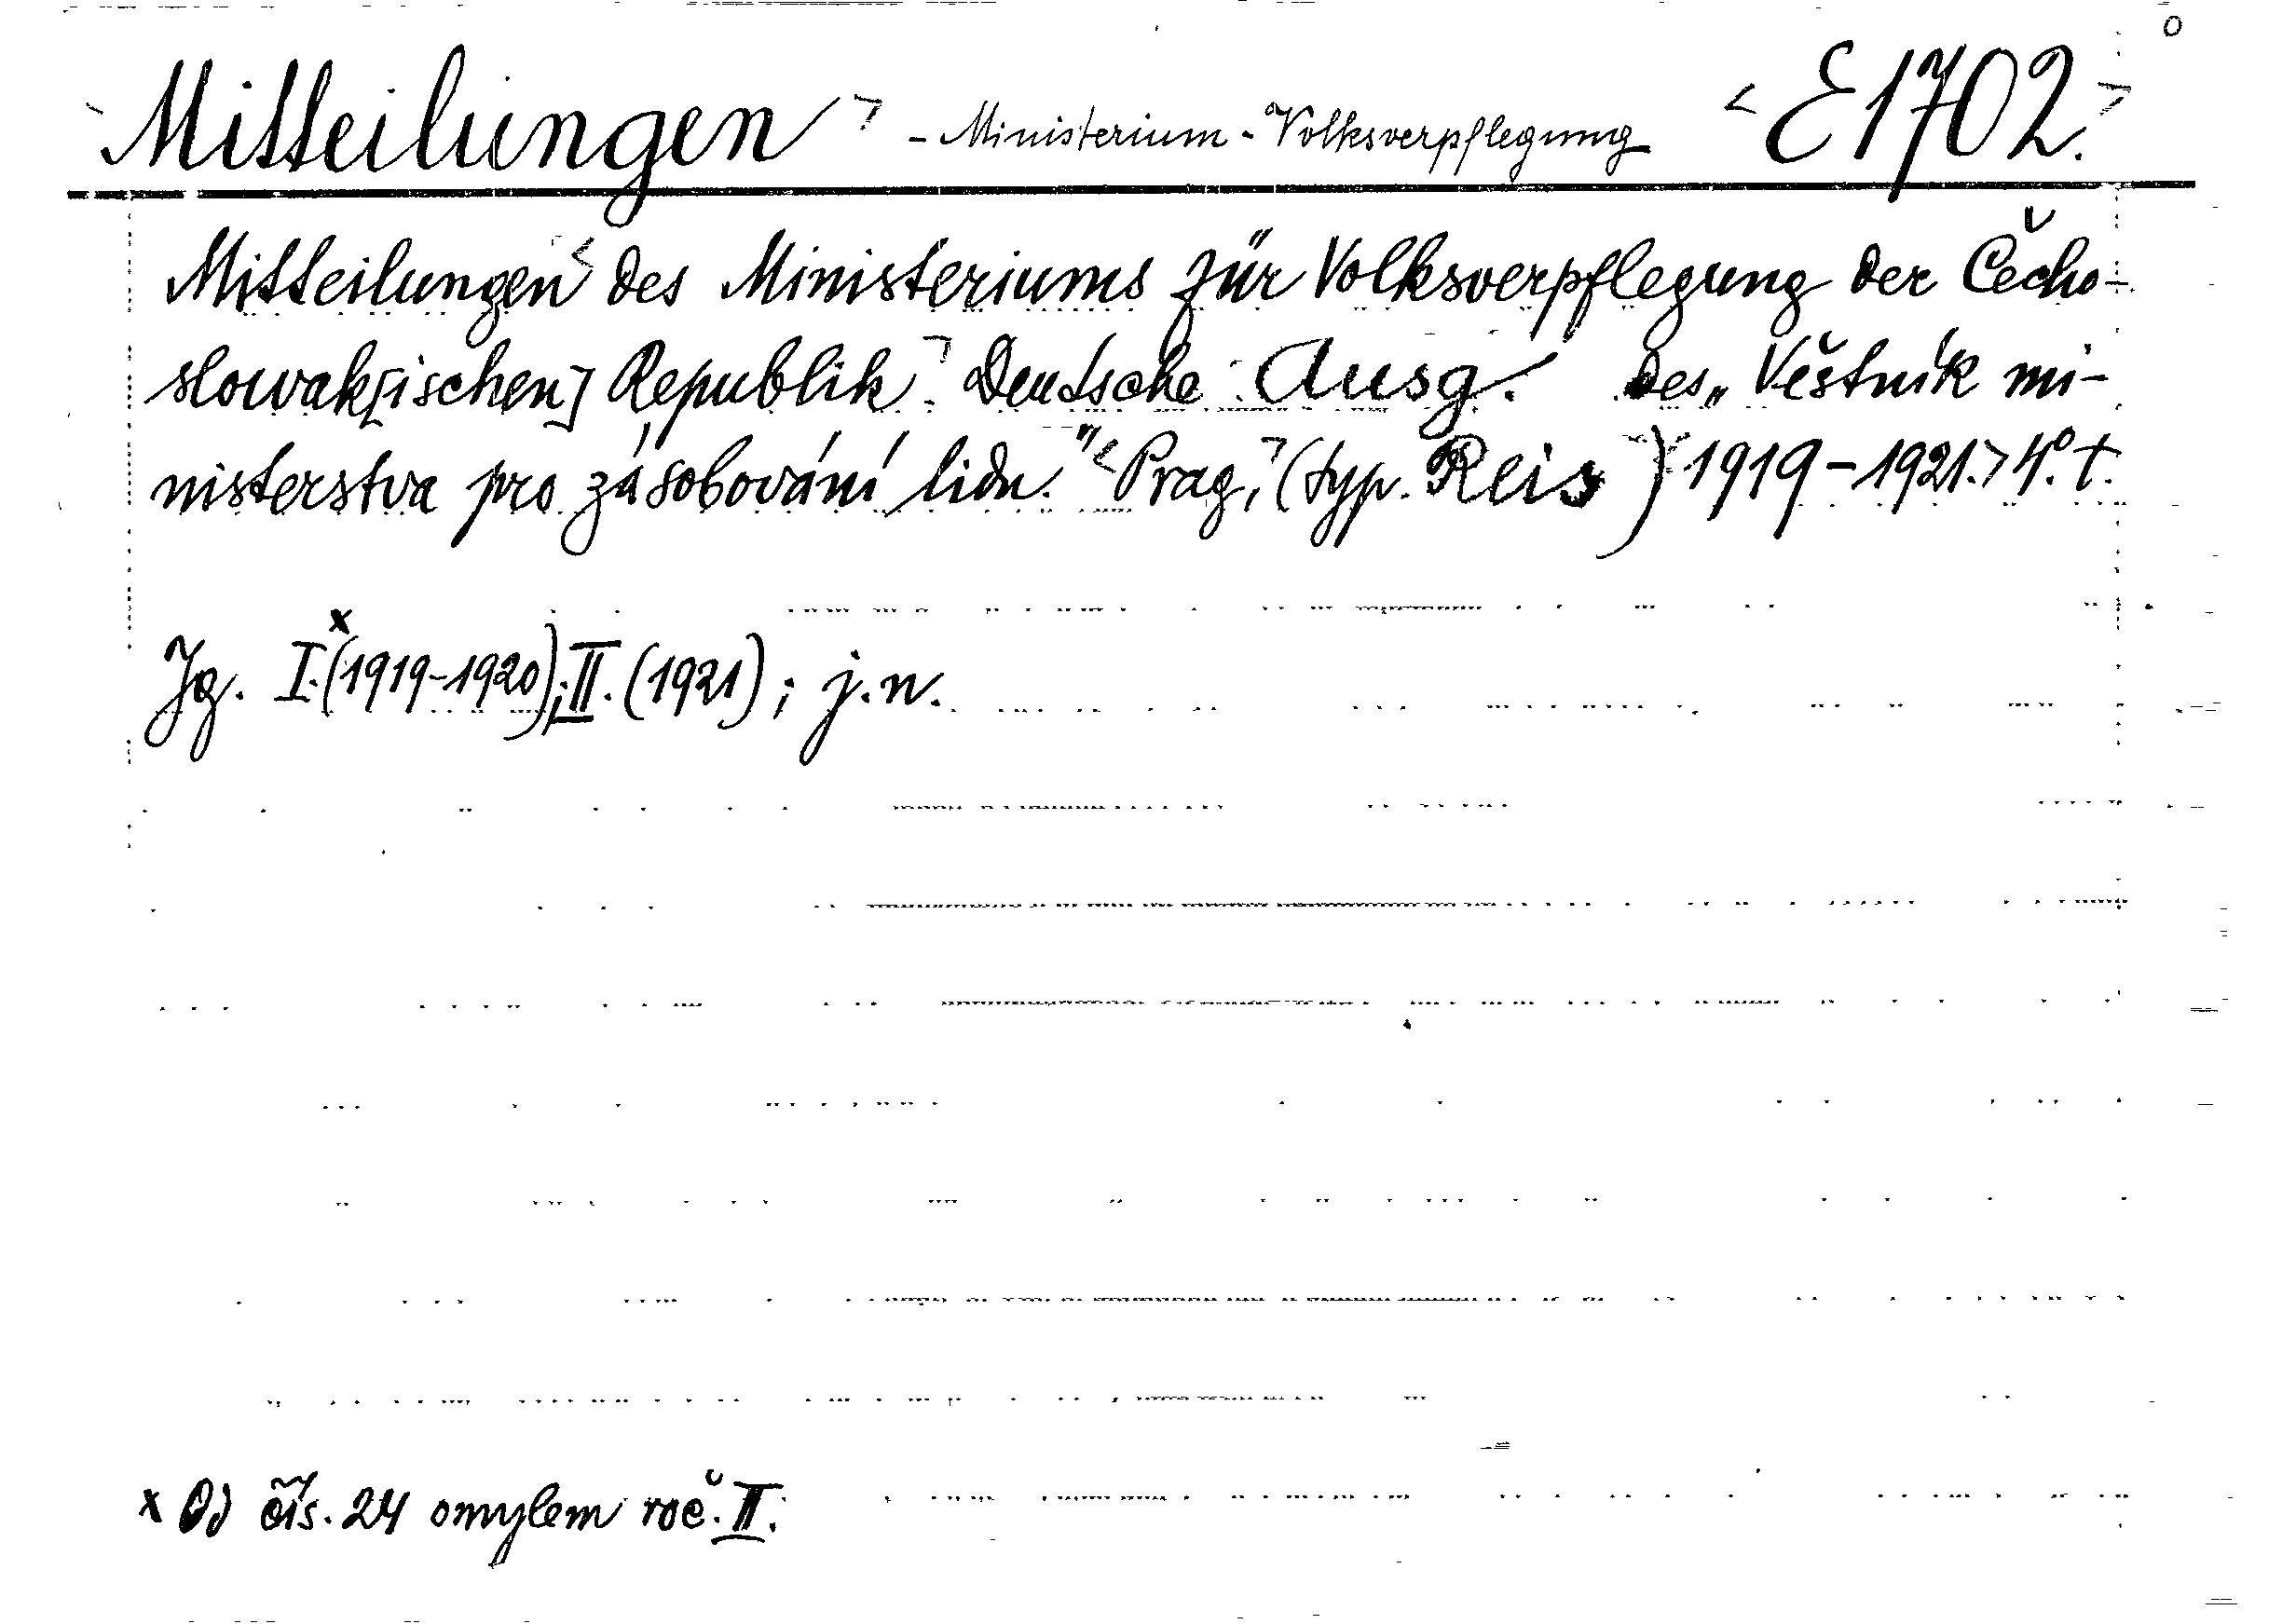 Mitteilungen - Ministerium - Volksverpflegung E 1702.
Mitteilungen des Ministeriums für Volksverpflegung der Čecho-
slowak[ischen] Republik. Deutsche Ausg. des „Věstník mi-
nisterstva pro zásobování lidu." Prag, (typ. Reis) 1919-1921. 4°. †.
Jg. I.ˣ(1919-1920); II. (1921); j.n.
x Od čís. 24 omylem roč. II.